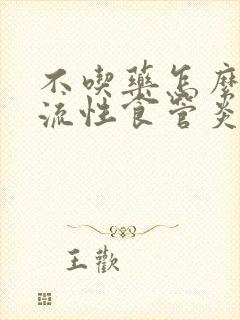 不喫藥怎麼
流性食管炎
王歡